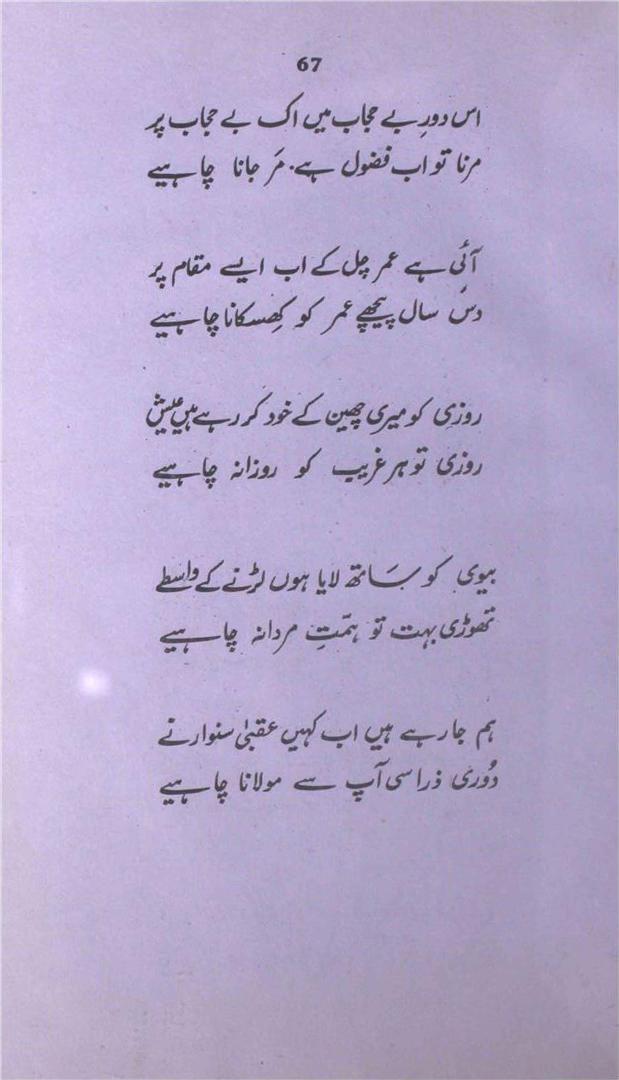 67
اس دورِ بے حجاب میں اک بے حجاب پر
مرنا تو اب فضول ہے۔ مَر جانا چاہیے
آئی ہے عمر چل کے اب ایسے مقام پر
دس سال پیچھے عمر کو کھِسکانا چاہیے
روزی کو میری چھین کے خود کر رہے ہیں عیش
روزی تو ہر غریب کو روزانہ چاہیے
بیوی کو سَاتھ لایا ہوں لڑنے کے واسطے
تھوڑی بہت تو ہمّتِ مردانہ چاہیے
ہم جا رہے ہیں اب کہیں عقبیٰ سنوارنے
دُوری ذرا سی آپ سے مولانا چاہیے